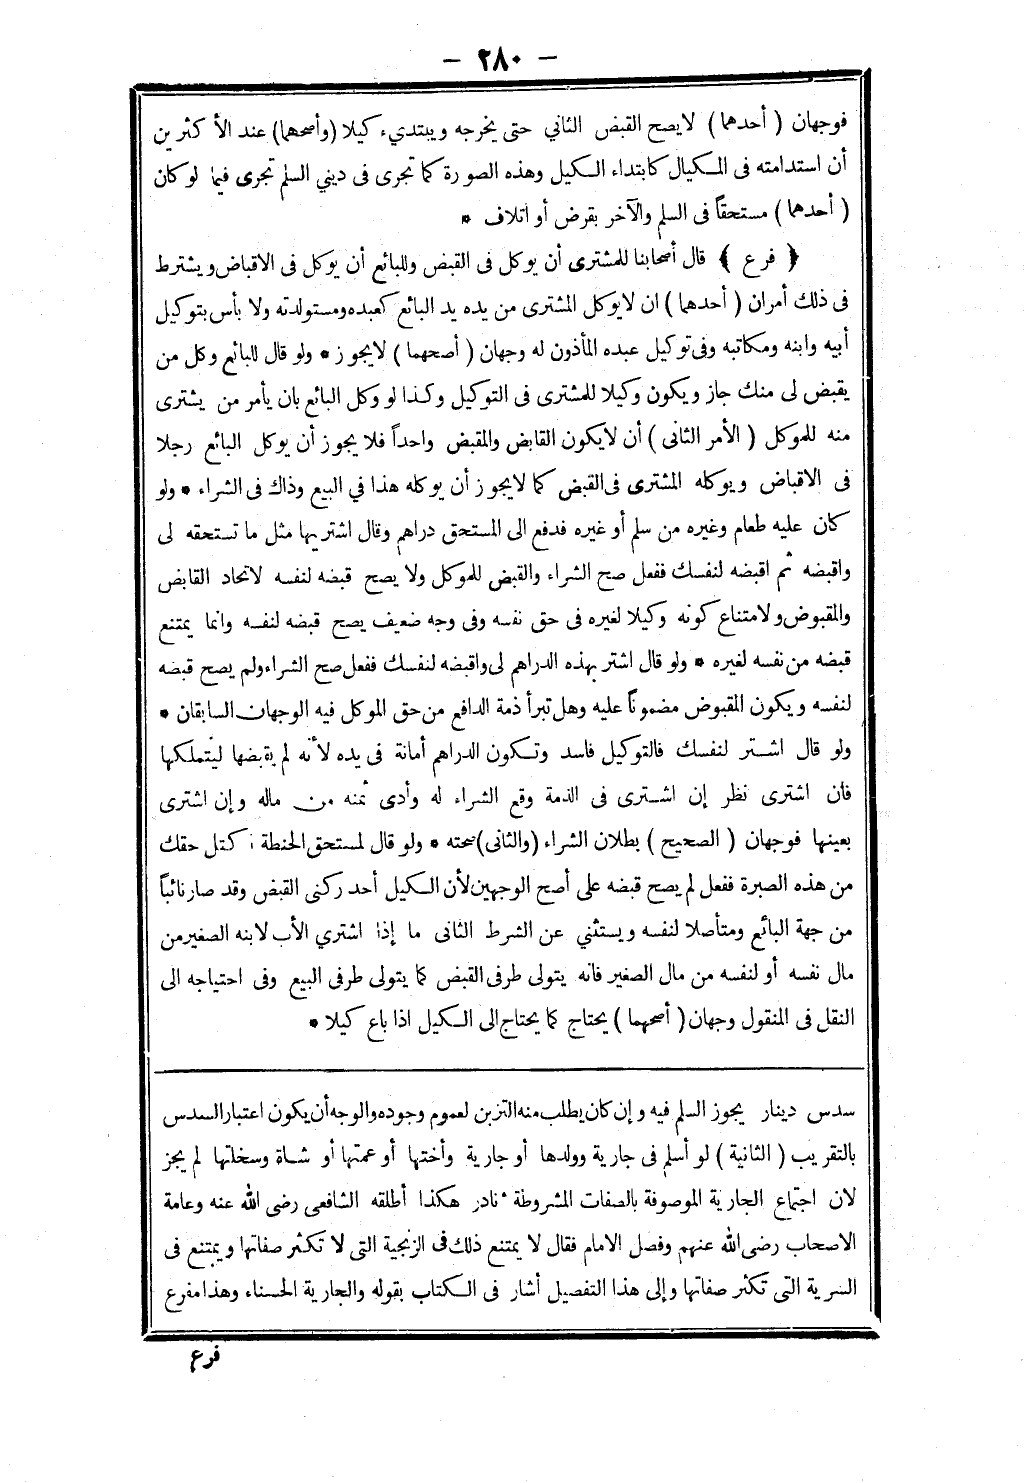 - ٢٨٠ -
فوجهان ( أحدهما ) لايصح القبض الثاني حتى يخرجه ويبتديء كيلا (وأصحهما) عند الأكثرين
أن استدامته فى المكيال كابتداء الكيل وهذه الصورة كما تجرى فى ديني السلم تجرى فيما لوكان
( أحدهما ) مستحقاً فى السلم والآخر بقرض أو اتلاف *
﴿ فرع ﴾ قال أصحابنا للمشترى أن يوكل فى القبض وللبائع أن يوكل فى الاقباض ويشترط
فى ذلك أمران ( أحدهما ) ان لايوكل المشترى من يده يد البائع كعبده ومستولدته ولا بأس بتوكيل
أبيه وابنه ومكاتبه وفى توكيل عبده المأذون له وجهان ( أصحهما ) لايجوز * ولو قال للبائع وكل من
يقبض لى منك جاز ويكون وكيلا للمشترى فى التوكيل وكذا لو وكل البائع بان يأمر من يشترى
منه للموكل ( الأمر الثانى ) أن لايكون القابض والمقبض واحداً فلا يجوز أن يوكل البائع رجلا
فى الاقباض ويوكله المشترى فى القبض كما لايجوز أن يوكله هذا في البيع وذاك فى الشراء * ولو
كان عليه طعام وغيره من سلم أو غيره فدفع الى المستحق دراهم وقال اشتر بها مثل ما تستحقه لى
واقبضه ثم اقبضه لنفسك ففعل صح الشراء والقبض للموكل ولا يصح قبضه لنفسه لاتحاد القابض
والمقبوض ولامتناع كونه وكيلا لغيره فى حق نفسه وفى وجه ضعيف يصح قبضه لنفسه وانما يمتنع
قبضه من نفسه لغيره * ولو قال اشتر بهذه الدراهم لى واقبضه لنفسك ففعل صح الشراء ولم يصح قبضه
لنفسه ويكون المقبوض مضموناً عليه وهل تبرأ ذمة الدافع من حق الموكل فيه الوجهان السابقان *
ولو قال اشتر لنفسك فالتوكيل فاسد وتكون الدراهم أمانة فى يده لأنه لم يقبضها ليتملكها
فان اشترى نظر إن اشترى فى الذمة وقع الشراء له وأدى ثمنه من ماله وإن اشترى
بعينها فوجهان ( الصحيح ) بطلان الشراء (والثانى) صحته * ولو قال لمستحق الحنطة اكتل حقك
من هذه الصبرة ففعل لم يصح قبضه على أصح الوجهين لأن الكيل أحد ركنى القبض وقد صار نائباً
من جهة البائع ومتأصلا لنفسه ويستثني عن الشرط الثانى ما إذا اشتري الأب لابنه الصغير من
مال نفسه أو لنفسه من مال الصغير فانه يتولى طرفى القبض كما يتولى طرفى البيع وفى احتياجه الى
النقل فى المنقول وجهان ( أصحهما ) يحتاج كما يحتاج الى الكيل اذا باع كيلا *
سدس دينار يجوز السلم فيه وإن كان يطلب منه التزين لعموم وجوده والوجه أن يكون اعتبار السدس
بالتقريب ( الثانية ) لو أسلم فى جارية وولدها أو جارية وأختها أو عمتها أو شاة وسخلتها لم يجز
لان اجتماع الجارية الموصوفة بالصفات المشروطة نادر هكذا أطلقه الشافعى رضى الله عنه وعامة
الاصحاب رضى الله عنهم وفصل الامام فقال لا يمتنع ذلك فى الزنجية التى لا تكثر صفاتها ويمتنع فى
السرية التى تكثر صفاتها وإلى هذا التفصيل أشار فى الكتاب بقوله والجارية الحسناء وهذا مفرع
فرع